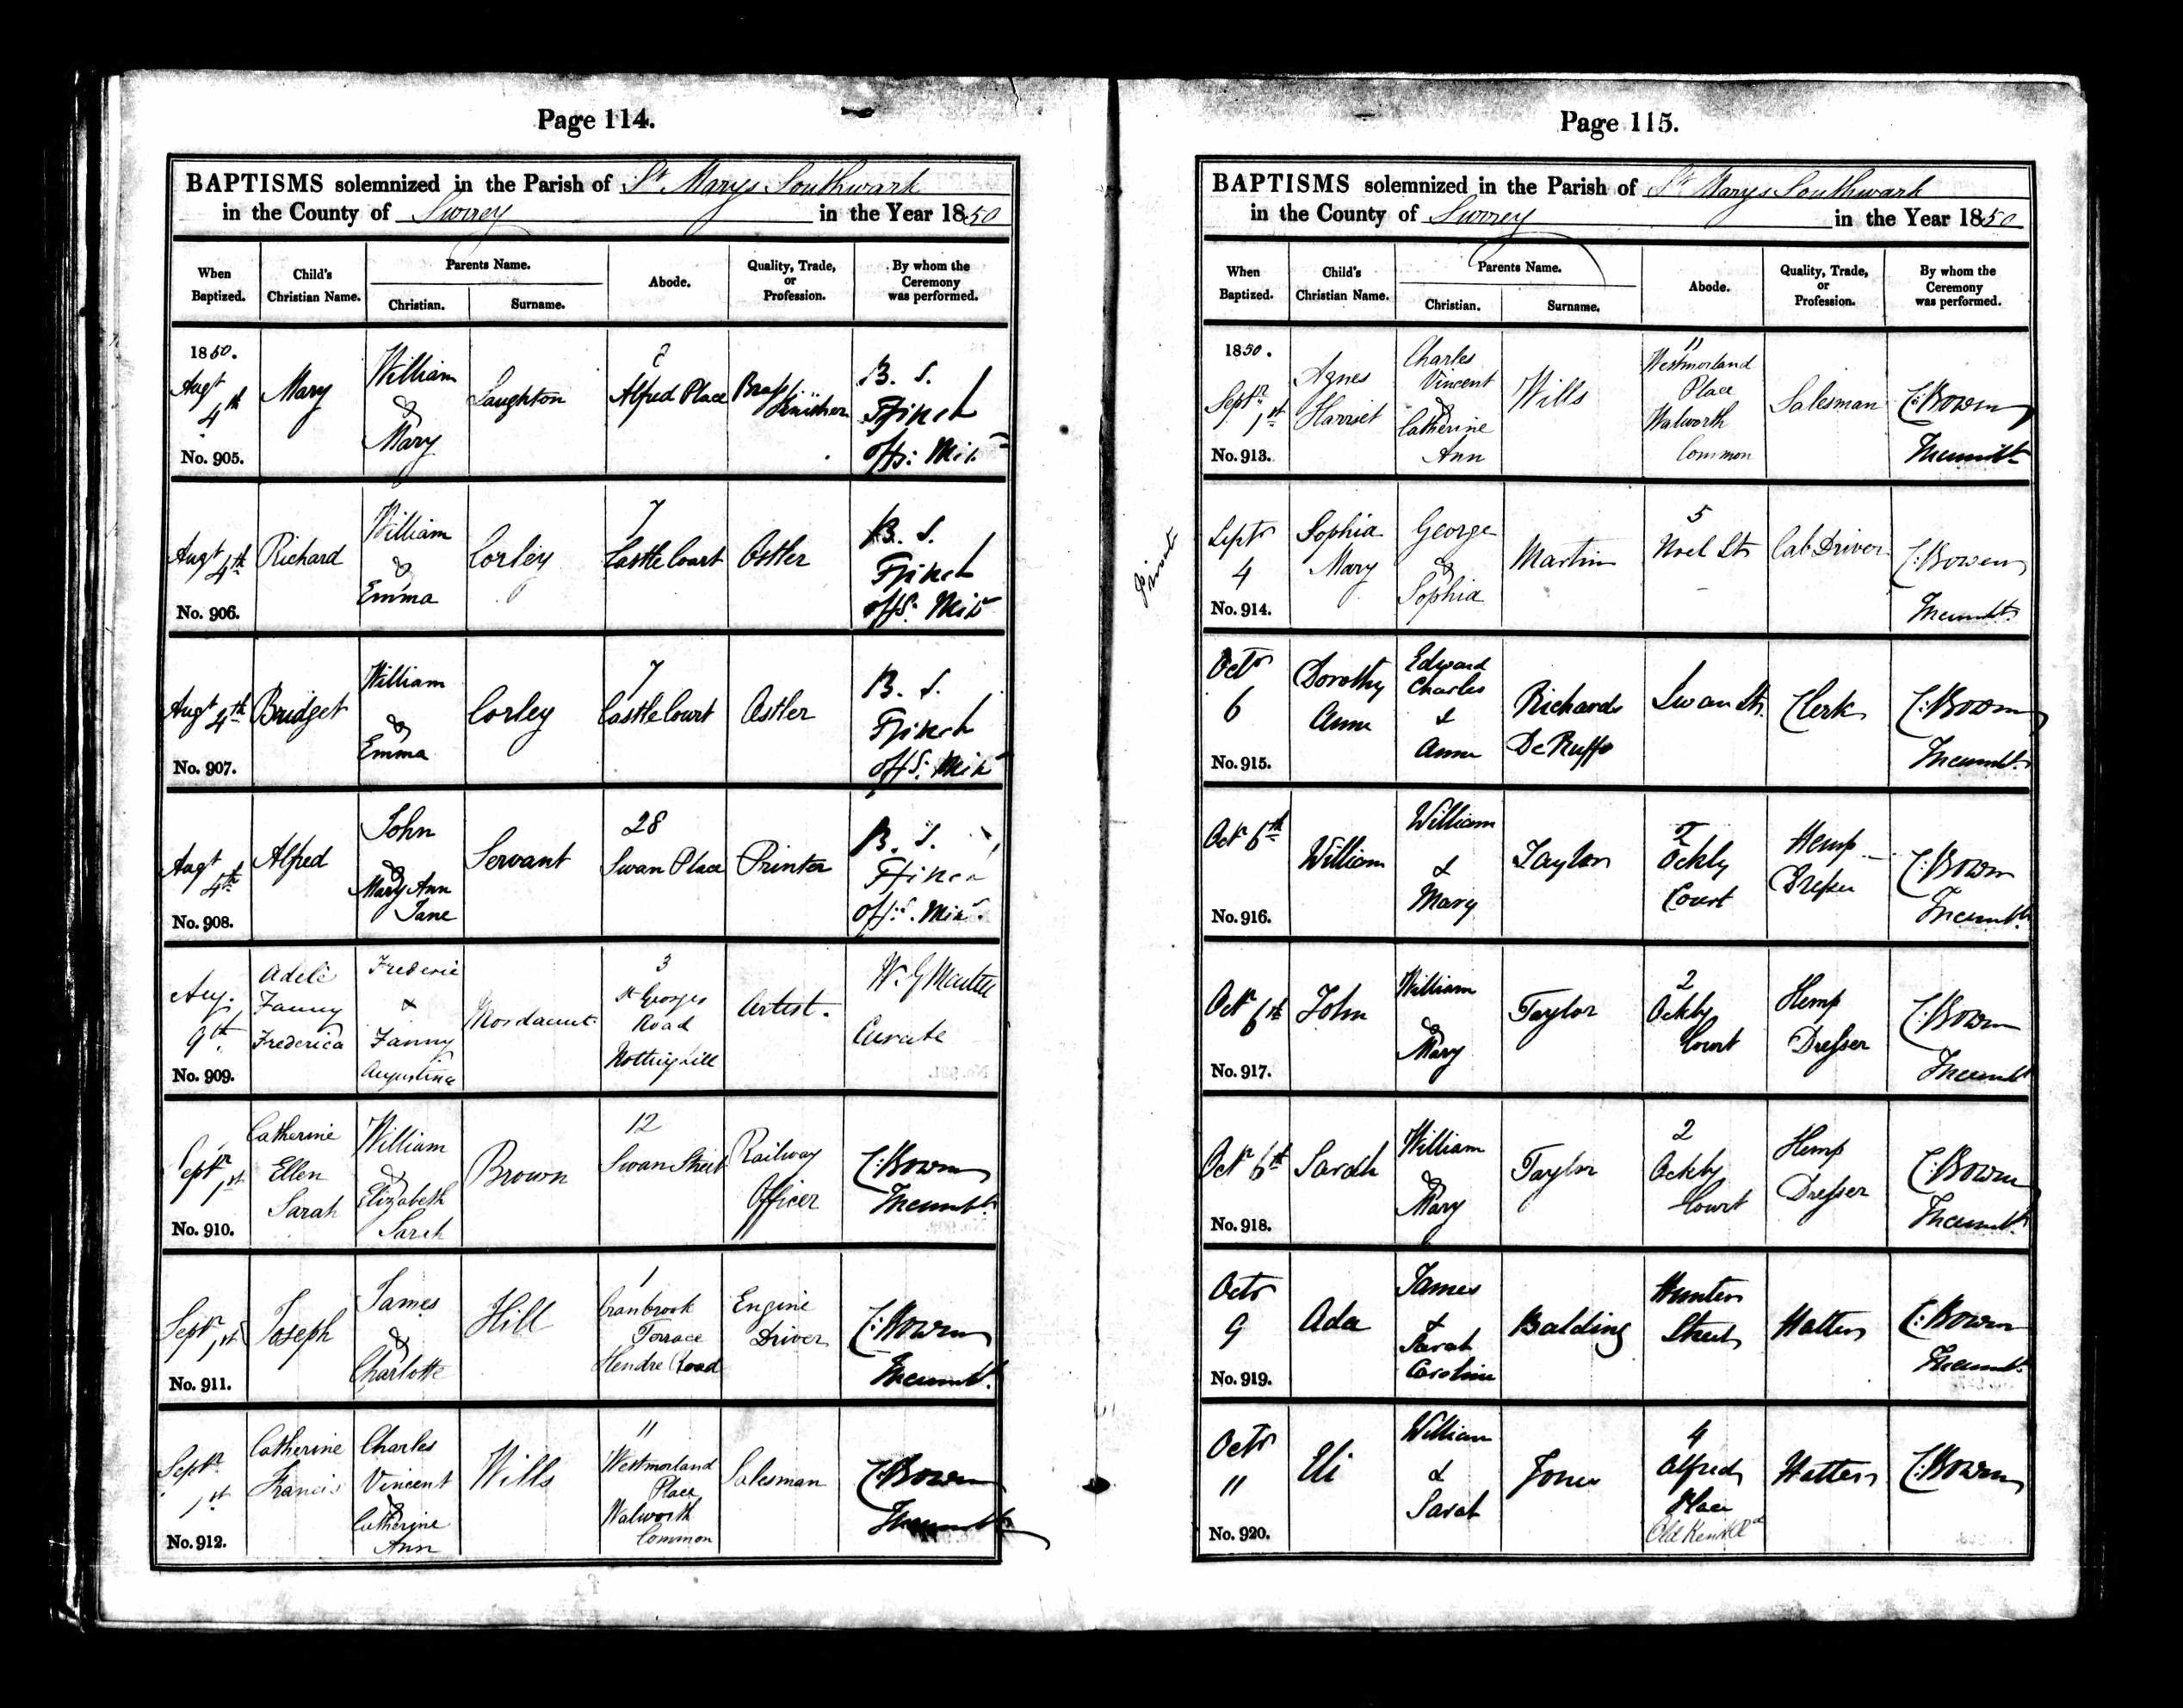 Page 114.
BAPTISMS solemnized in the Parish of St Marys Southwark
in the County of Surrey in the Year 1850
When Baptized.
Child's Christian Name.
Parents Name.
Christian.
Surname.
Abode.
Quality, Trade, or Profession.
By whom the Ceremony was performed.
1850.
Augt 4th
No. 905.
Mary
William
&
Mary
Laughton
2
Alfred Place
Brass
Finisher
B. S.
Ffinch
Offg: Minr
Augt 4th
No. 906.
Richard
William
&
Emma
Corley
7
Castle Court
Ostler
B. S.
Ffinch
Offg. Minr
Augt 4th
No. 907.
Bridget
William
&
Emma
Corley
7
Castle Court
Ostler
B. S.
Ffinch
Offg. Minr
Augt 4th
No. 908.
Alfred
John
&
Mary Ann
Jane
Servant
28
Swan Place
Printer
B. S.
Ffinch
Offg. Minr.
Aug. 9th
No. 909.
Adele
Fanny
Frederica
Frederic
&
Fanny
Augustina
Mordaunt
3
St Georges
Road
Nottinghill
Artist.
W. G
Curate
Septr 1st
No. 910.
Catherine
Ellen
Sarah
William
&
Elizabeth
Sarah
Brown
12
Swan Street
Railway
Officer
C: Bowen
Incumbt.
Septr 1st
No. 911.
Joseph
James
&
Charlotte
Hill
1
Cranbrook
Terrace
Hendre Road
Engine
Driver
C: Bowen
Incumbt.
Septr 1st
No. 912.
Catherine
Francis
Charles
Vincent
&
Catherine
Ann
Wills
11
Westmorland
Place
Walworth
Common
Salesman
C: Bowen
Incumbt
Page 115.
BAPTISMS solemnized in the Parish of St Marys Southwark
in the County of Surrey in the Year 1850
When Baptized.
Child's Christian Name.
Parents Name.
Christian.
Surname.
Abode.
Quality, Trade, or Profession.
By whom the Ceremony was performed.
1850.
Septr 1st
No. 913.
Agnes
Harriet
Charles
Vincent
&
Catherine
Ann
Wills
11
Westmorland
Place
Walworth
Common
Salesman
C: Bowen
Incumbt
Private
Septr
4
No. 914.
Sophia
Mary
George
&
Sophia
Martin
5
Noel St
Cab Driver
C: Bowen
Incumbt.
Octr
6
No. 915.
Dorothy
Anne
Edward
Charles
&
Anne
Richards
De Ruffo
Swan St.
Clerk
C: Bowen
Incumbt.
Octr 6th
No. 916.
William
William
&
Mary
Taylor
2
Ockly
Court
Hemp
Dresser
C: Bowen
Incumbt.
Octr 6th
No. 917.
John
William
&
Mary
Taylor
2
Ockly
Court
Hemp
Dresser
C: Bowen
Incumbt
Octr 6th
No. 918.
Sarah
William
&
Mary
Taylor
2
Ockly
Court
Hemp
Dresser
C: Bowen
Incumbt
Octr
9
No. 919.
Ada
James
&
Sarah
Caroline
Balding
Hunter
Street
Hatter
C: Bowen
Incumbt.
Octr
11
No. 920.
Eli
William
&
Sarah
Jones
4
Alfred
Place
Old Kent Rd
Hatter
C: Bowen